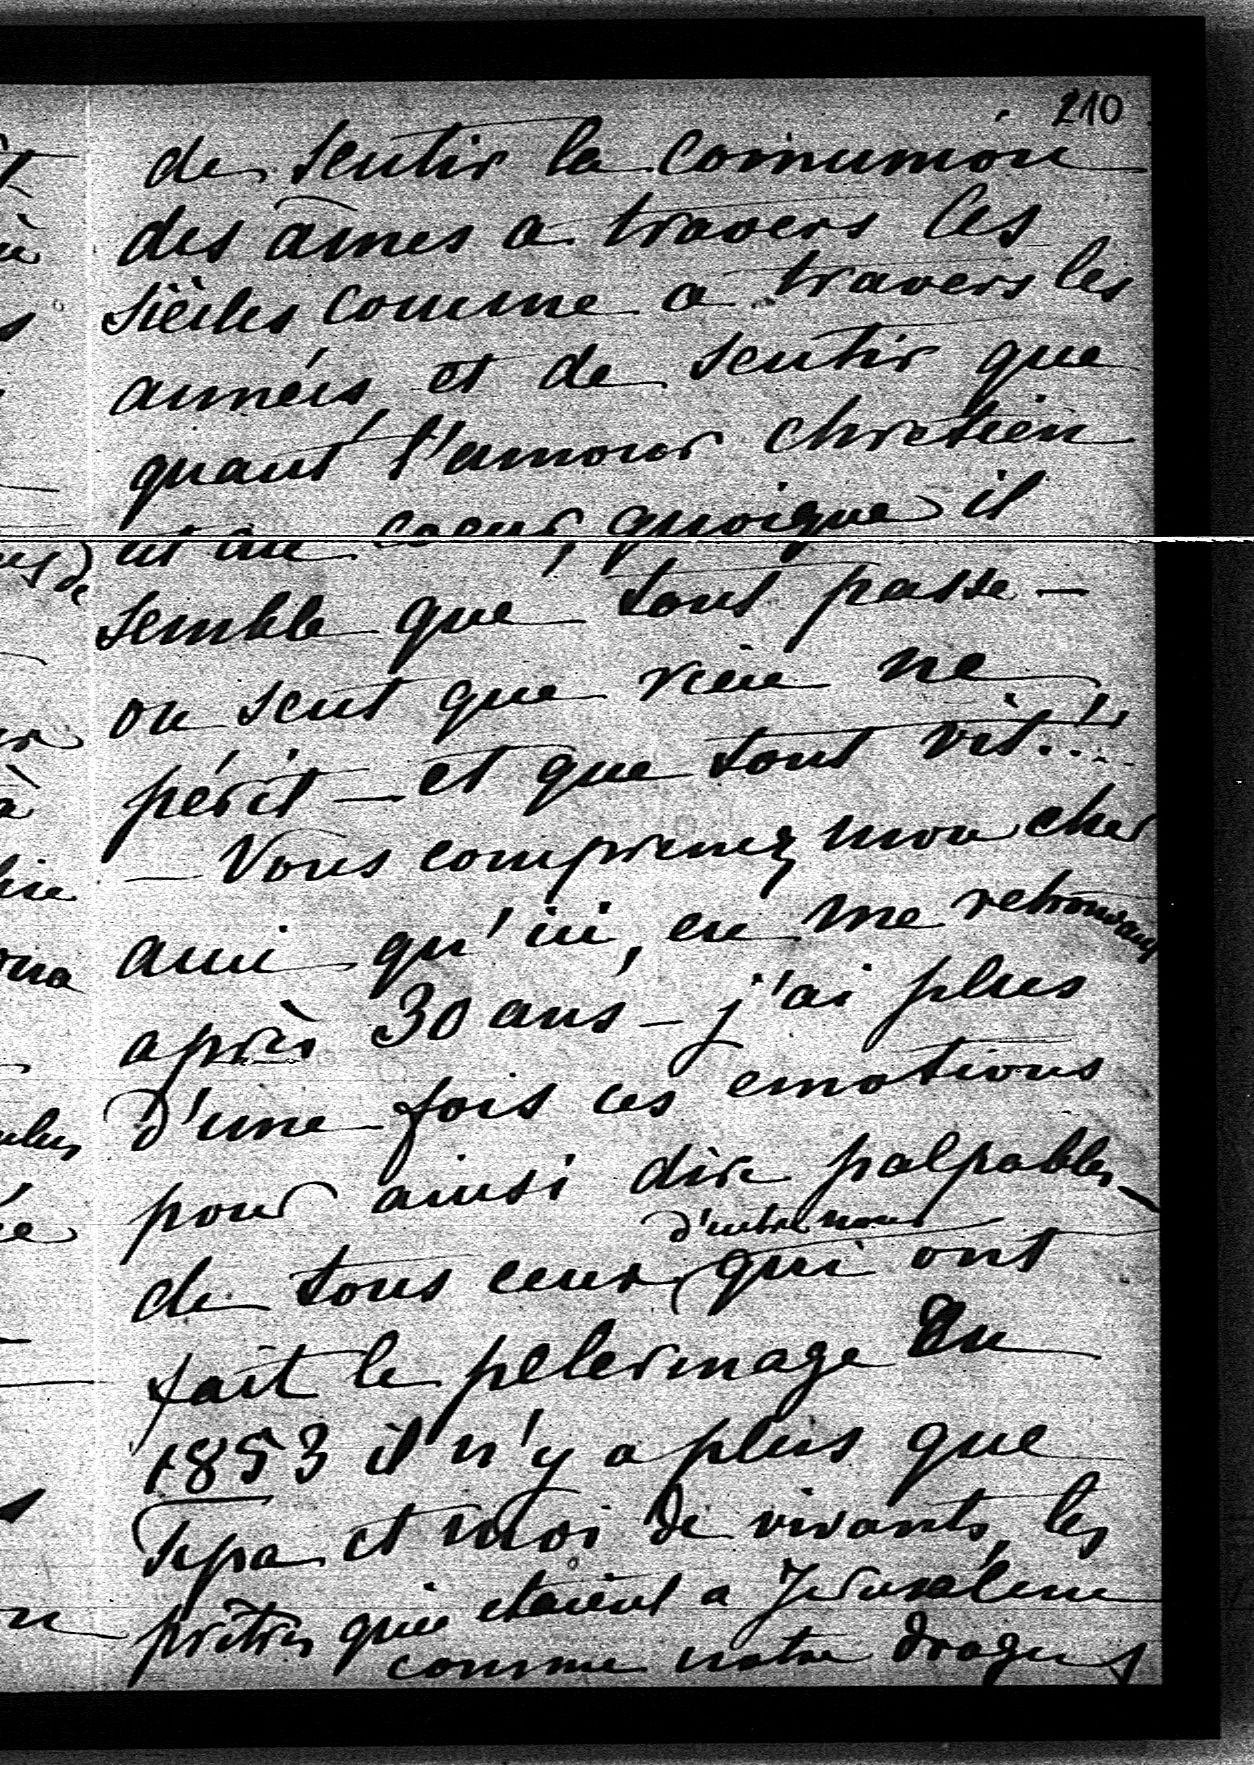 210
de sentir la communion
des âmes a travers les
siècles comme a travers les
années et de sentir que
quant l'amour chretien
est au coeur, quoique il
semble que tout passe —
on sent que rien ne
périt — et que tout vit..!!
— Vous comprenez, mon cher
ami qu'ici, en me retrouvant
après 30 ans — j'ai plus
d'une fois ces emotions
pour ainsi dire palpables —
d'entre nous
de tous ceux qui ont
fait le pelerinage En
1853 il n'y a plus que
Pepa et moi de vivants, les
prêtres qui etaient a Jerusalem
comme notre